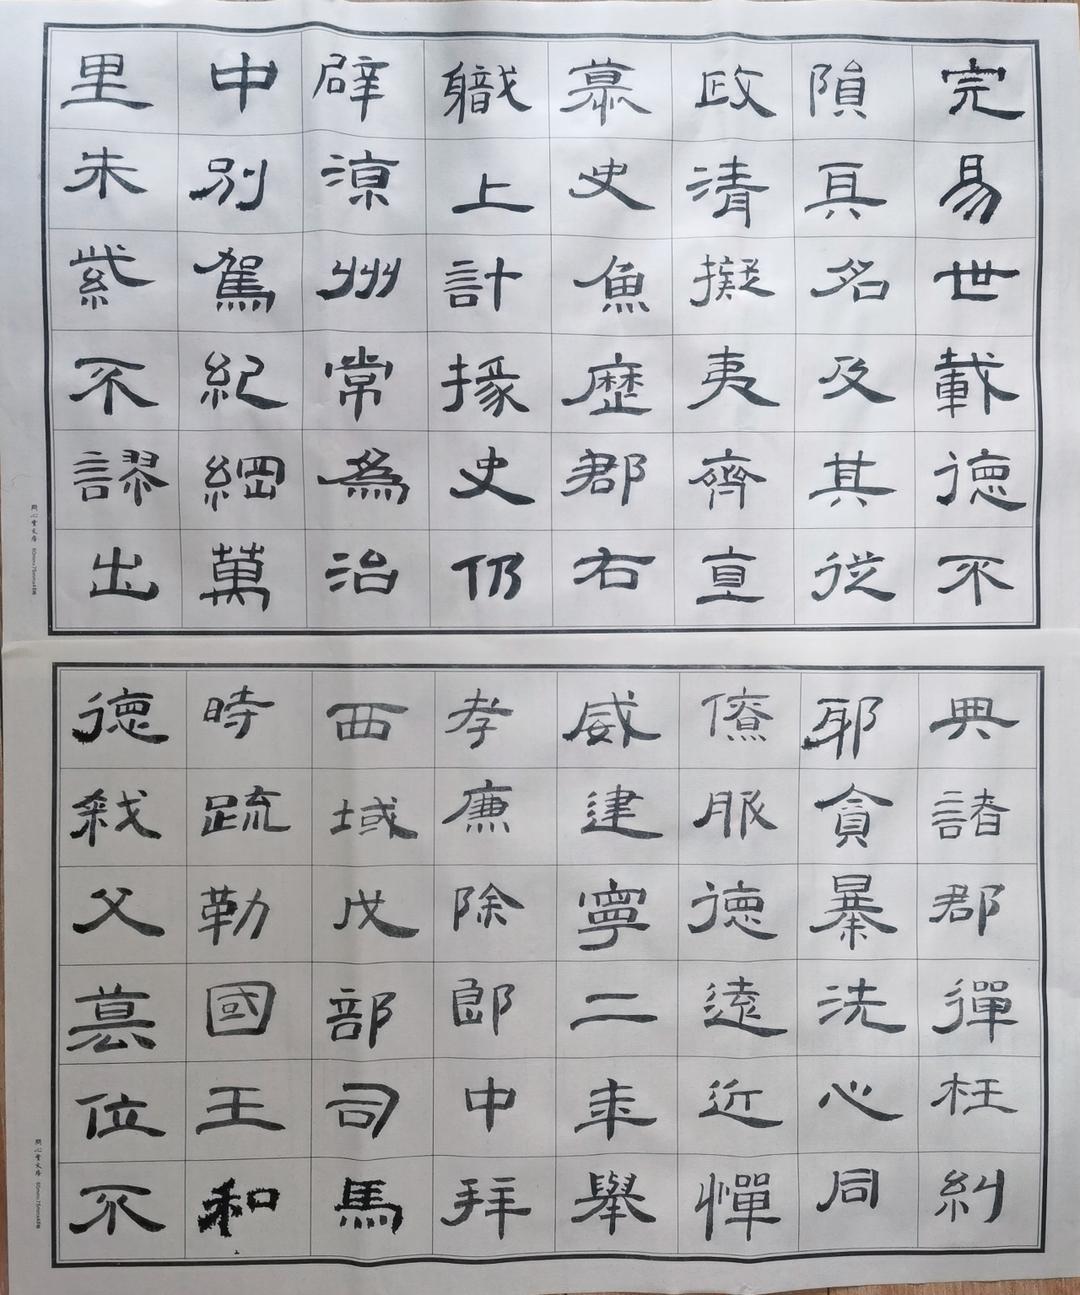 完易世載德不
隕其名及其從
政清擬夷齊直
慕史魚歷郡右
職上計掾史仍
辟涼州常為治
中別駕紀綱萬
里朱紫不謬出
典諸郡彈枉糾
邪貪暴洗心同
僚服德遠近憚
威建寧二年舉
孝廉除郎中拜
西域戊部司馬
時疏勒國王和
德弒父篡位不